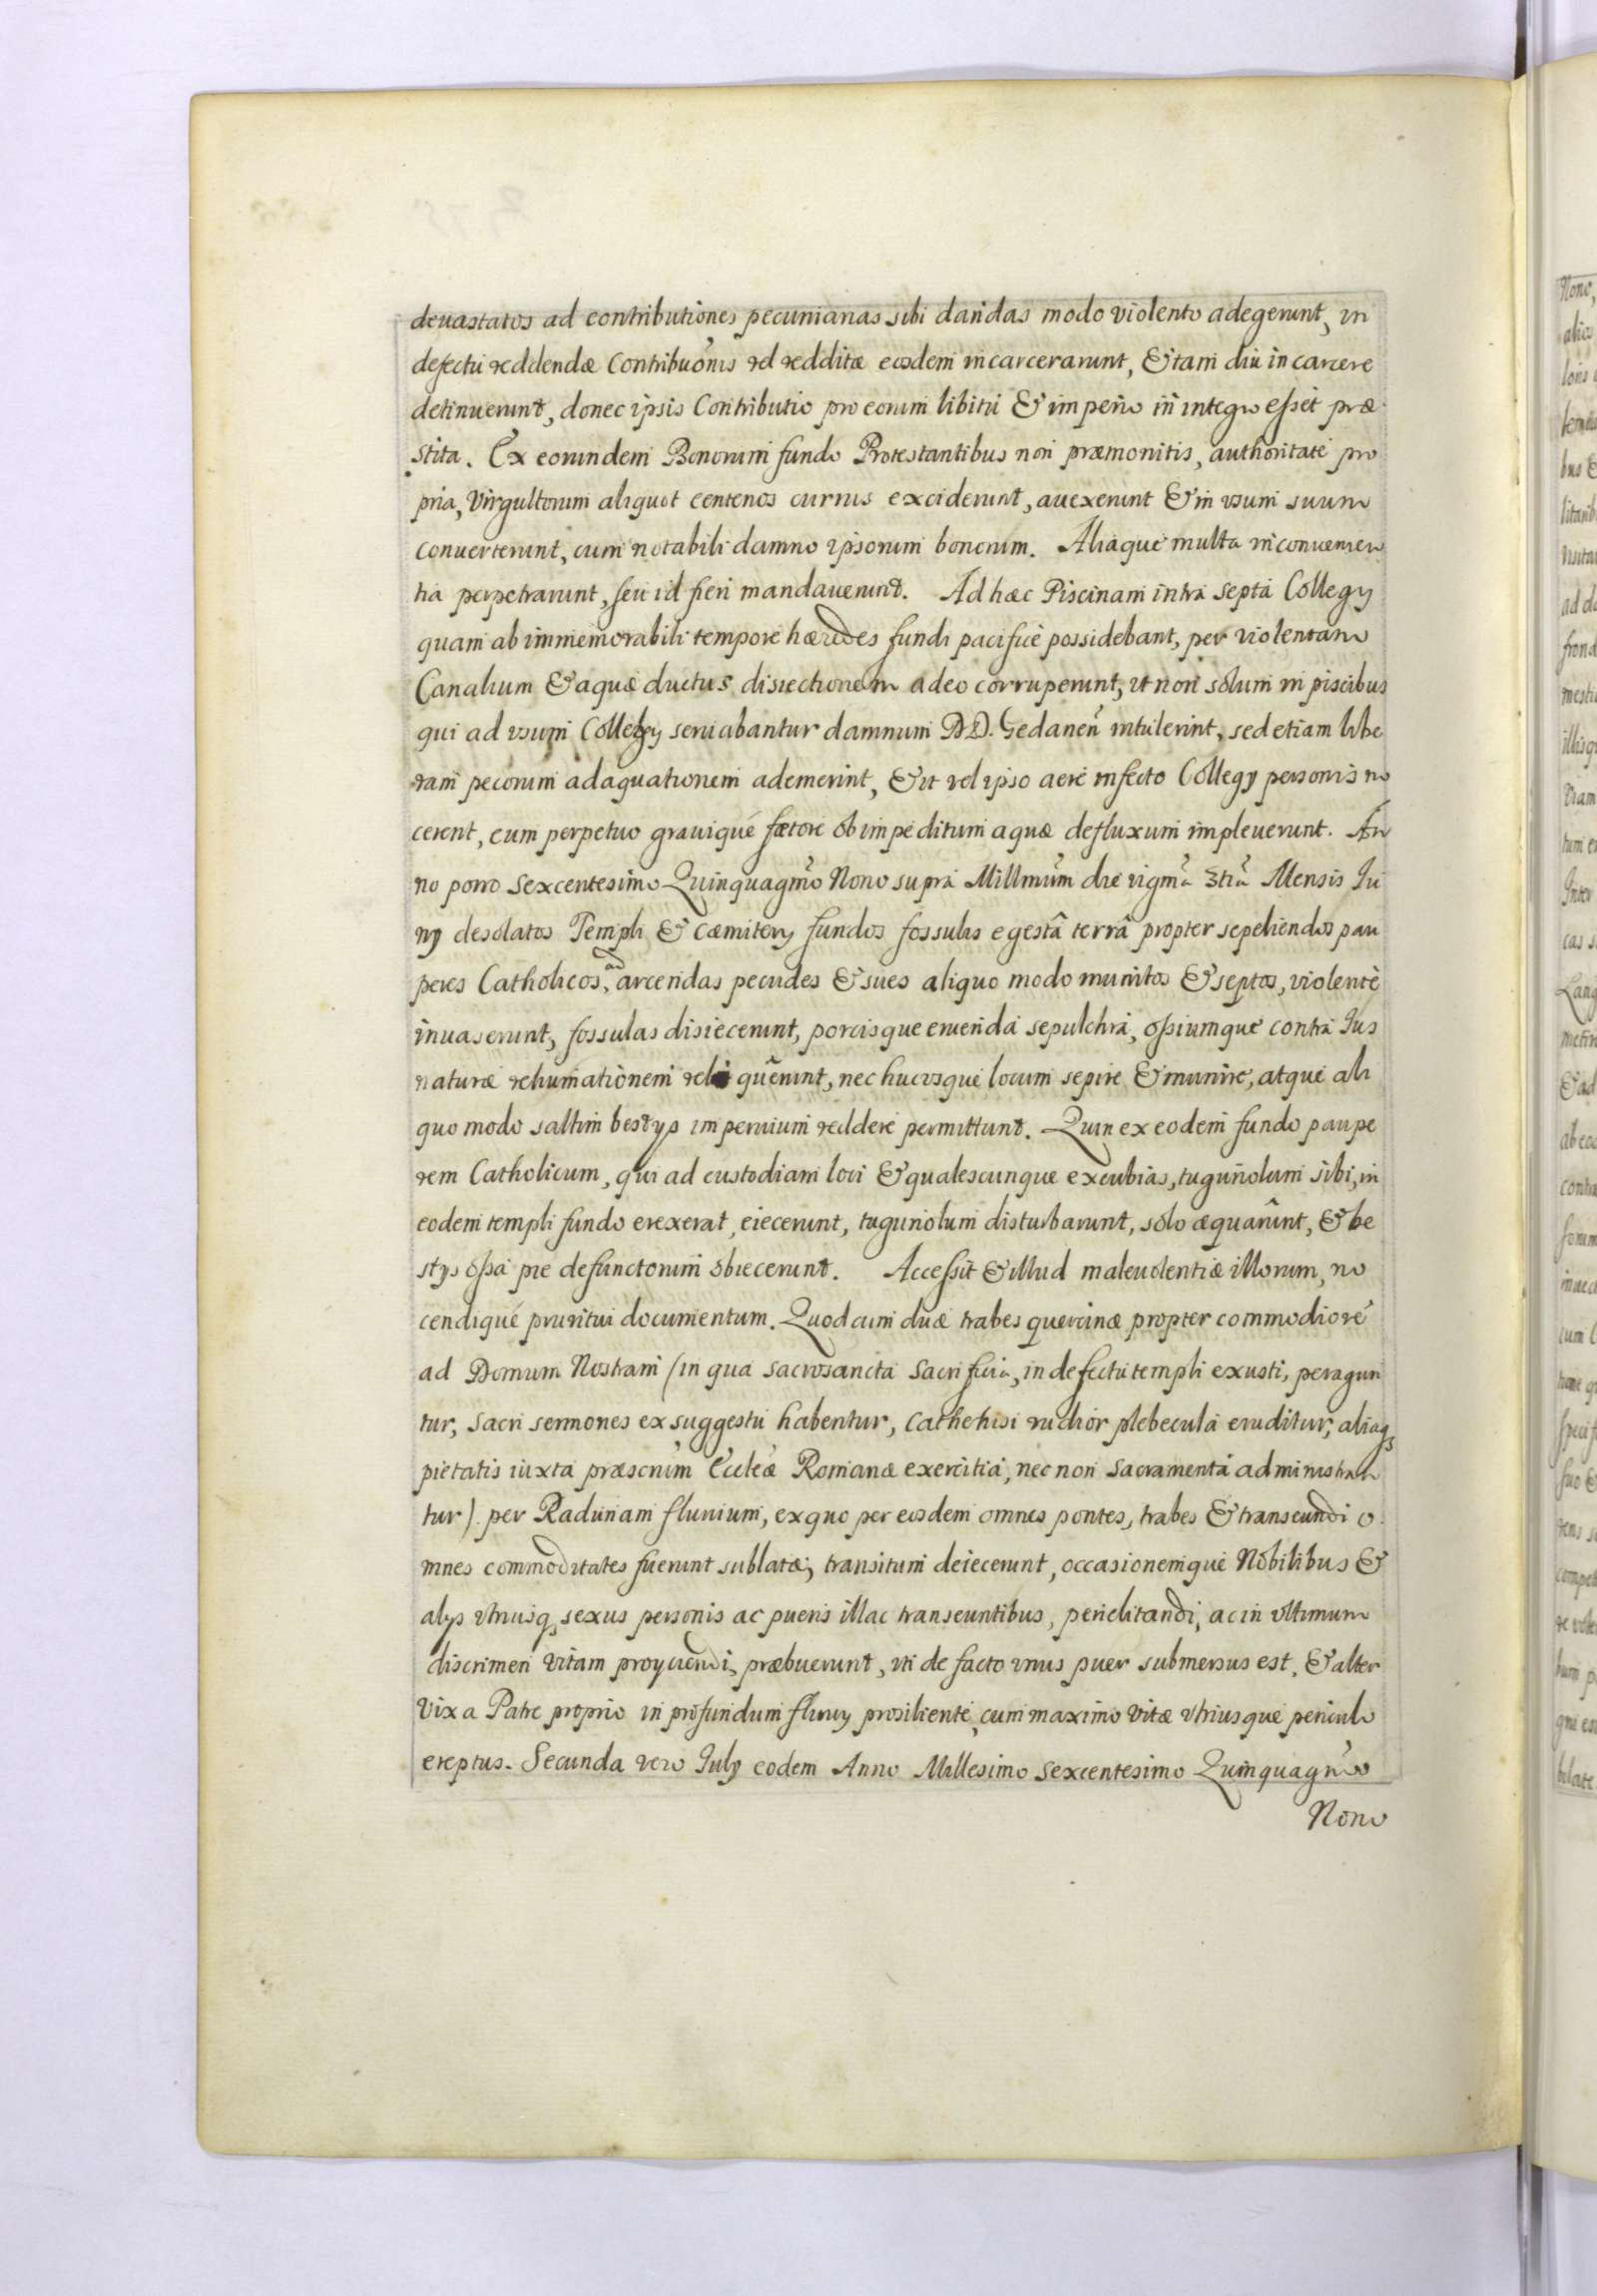 deuastatos ad contributiones pecuniarias sibi dandas modo violento adegerunt, in
defectu reddendæ Contribuõnis vel redditæ eosdem incarcerarunt, & tam diu in carcere
detinuerunt, donec ipsis Contributio pro eorum libitu & imperio in integro esset præ
stita. Ex eorundem Bonorum fundo Protestantibus non præmonitis, authoritate pro
pria, Virgultorum aliquot centenos currus exciderunt, auexerunt & in vsum suum
conuerterunt, cum notabili damno ipsorum bonorum. Aliaque multa inconuenien
tia perpetrarunt, seu id fieri mandauerunt. Ad hæc Piscinam intra septa Collegy
quam ab immemorabili tempore hæredes fundi pacificè possidebant, per violentam
Canalium & aquæ ductus disiectionem adeo corruperunt, vt non solum in piscibus
qui ad vsum Collegy seruabantur damnum DD. Gedaneñ intulerint, sed etiam libe
ram pecorum adaquationem ademerint, & vt vel ipso aere infecto Collegy personis no
cerent, cum perpetuo grauique fœtore ob impeditum aquæ defluxum impleuerunt. An
no porro Sexcentesimo Quinquagmo Nono supra Millmum die vigma 3tia Mensis Iu
ny desolatos Templi & Cæmitery fundos fossulis egestâ terrâ propter sepeliendos pau
peres Catholicos, ad arcendas pecudes & sues aliquo modo munitos & septos, violentè
inuaserunt, fossulas disiecerunt, porcisque eruenda sepulchra, ossiumque contra Jus
naturæ rehumationem reliquerunt, nec hucvsque locum sepire & munire, atque ali
quo modo saltim bestys imperuium reddere permittunt. Quin ex eodem fundo paupe
rem Catholicum, qui ad custodiam loci & qualescunque excubias, tuguriolum sibi, in
eodem templi fundo erexerat, eiecerunt, tuguriolum disturbarunt, solo æquarunt, & be
stys ossa pie defunctorum obiecerunt. Accessit & illud maleuolentiæ illorum, no
cendique pruritui documentum. Quod cum duæ trabes quercinæ propter commodiorē
ad Domum Nostram (in qua sacrosancta Sacrificia, in defectu templi exusti, peragun
tur, sacri sermones ex suggestu habentur, Cathehisi rudior plebecula eruditur, aliaqs
pietatis iuxta præscrium Eccleæ Romanæ exercitia, nec non Sacramenta administran
tur) per Radunam fluuium, ex quo per eosdem omnes pontes, trabes & transeundi o
mnes commoditates fuerunt sublatæ, transitum deiecerunt, occasionemque Nobilibus &
alys vtriusqs sexus personis ac pueris illac transeuntibus, periclitandi, ac in vltimum
discrimen vitam proyciendi, præbuerunt, vti de facto vnus puer submersus est, & alter
vix a Patre proprio in profundum fluuy prosiliente, cum maximo vitæ vtriusque periculo
ereptus. Secunda vero July eodem Anno Millesimo Sexcentesimo Quinquagmo
Nono